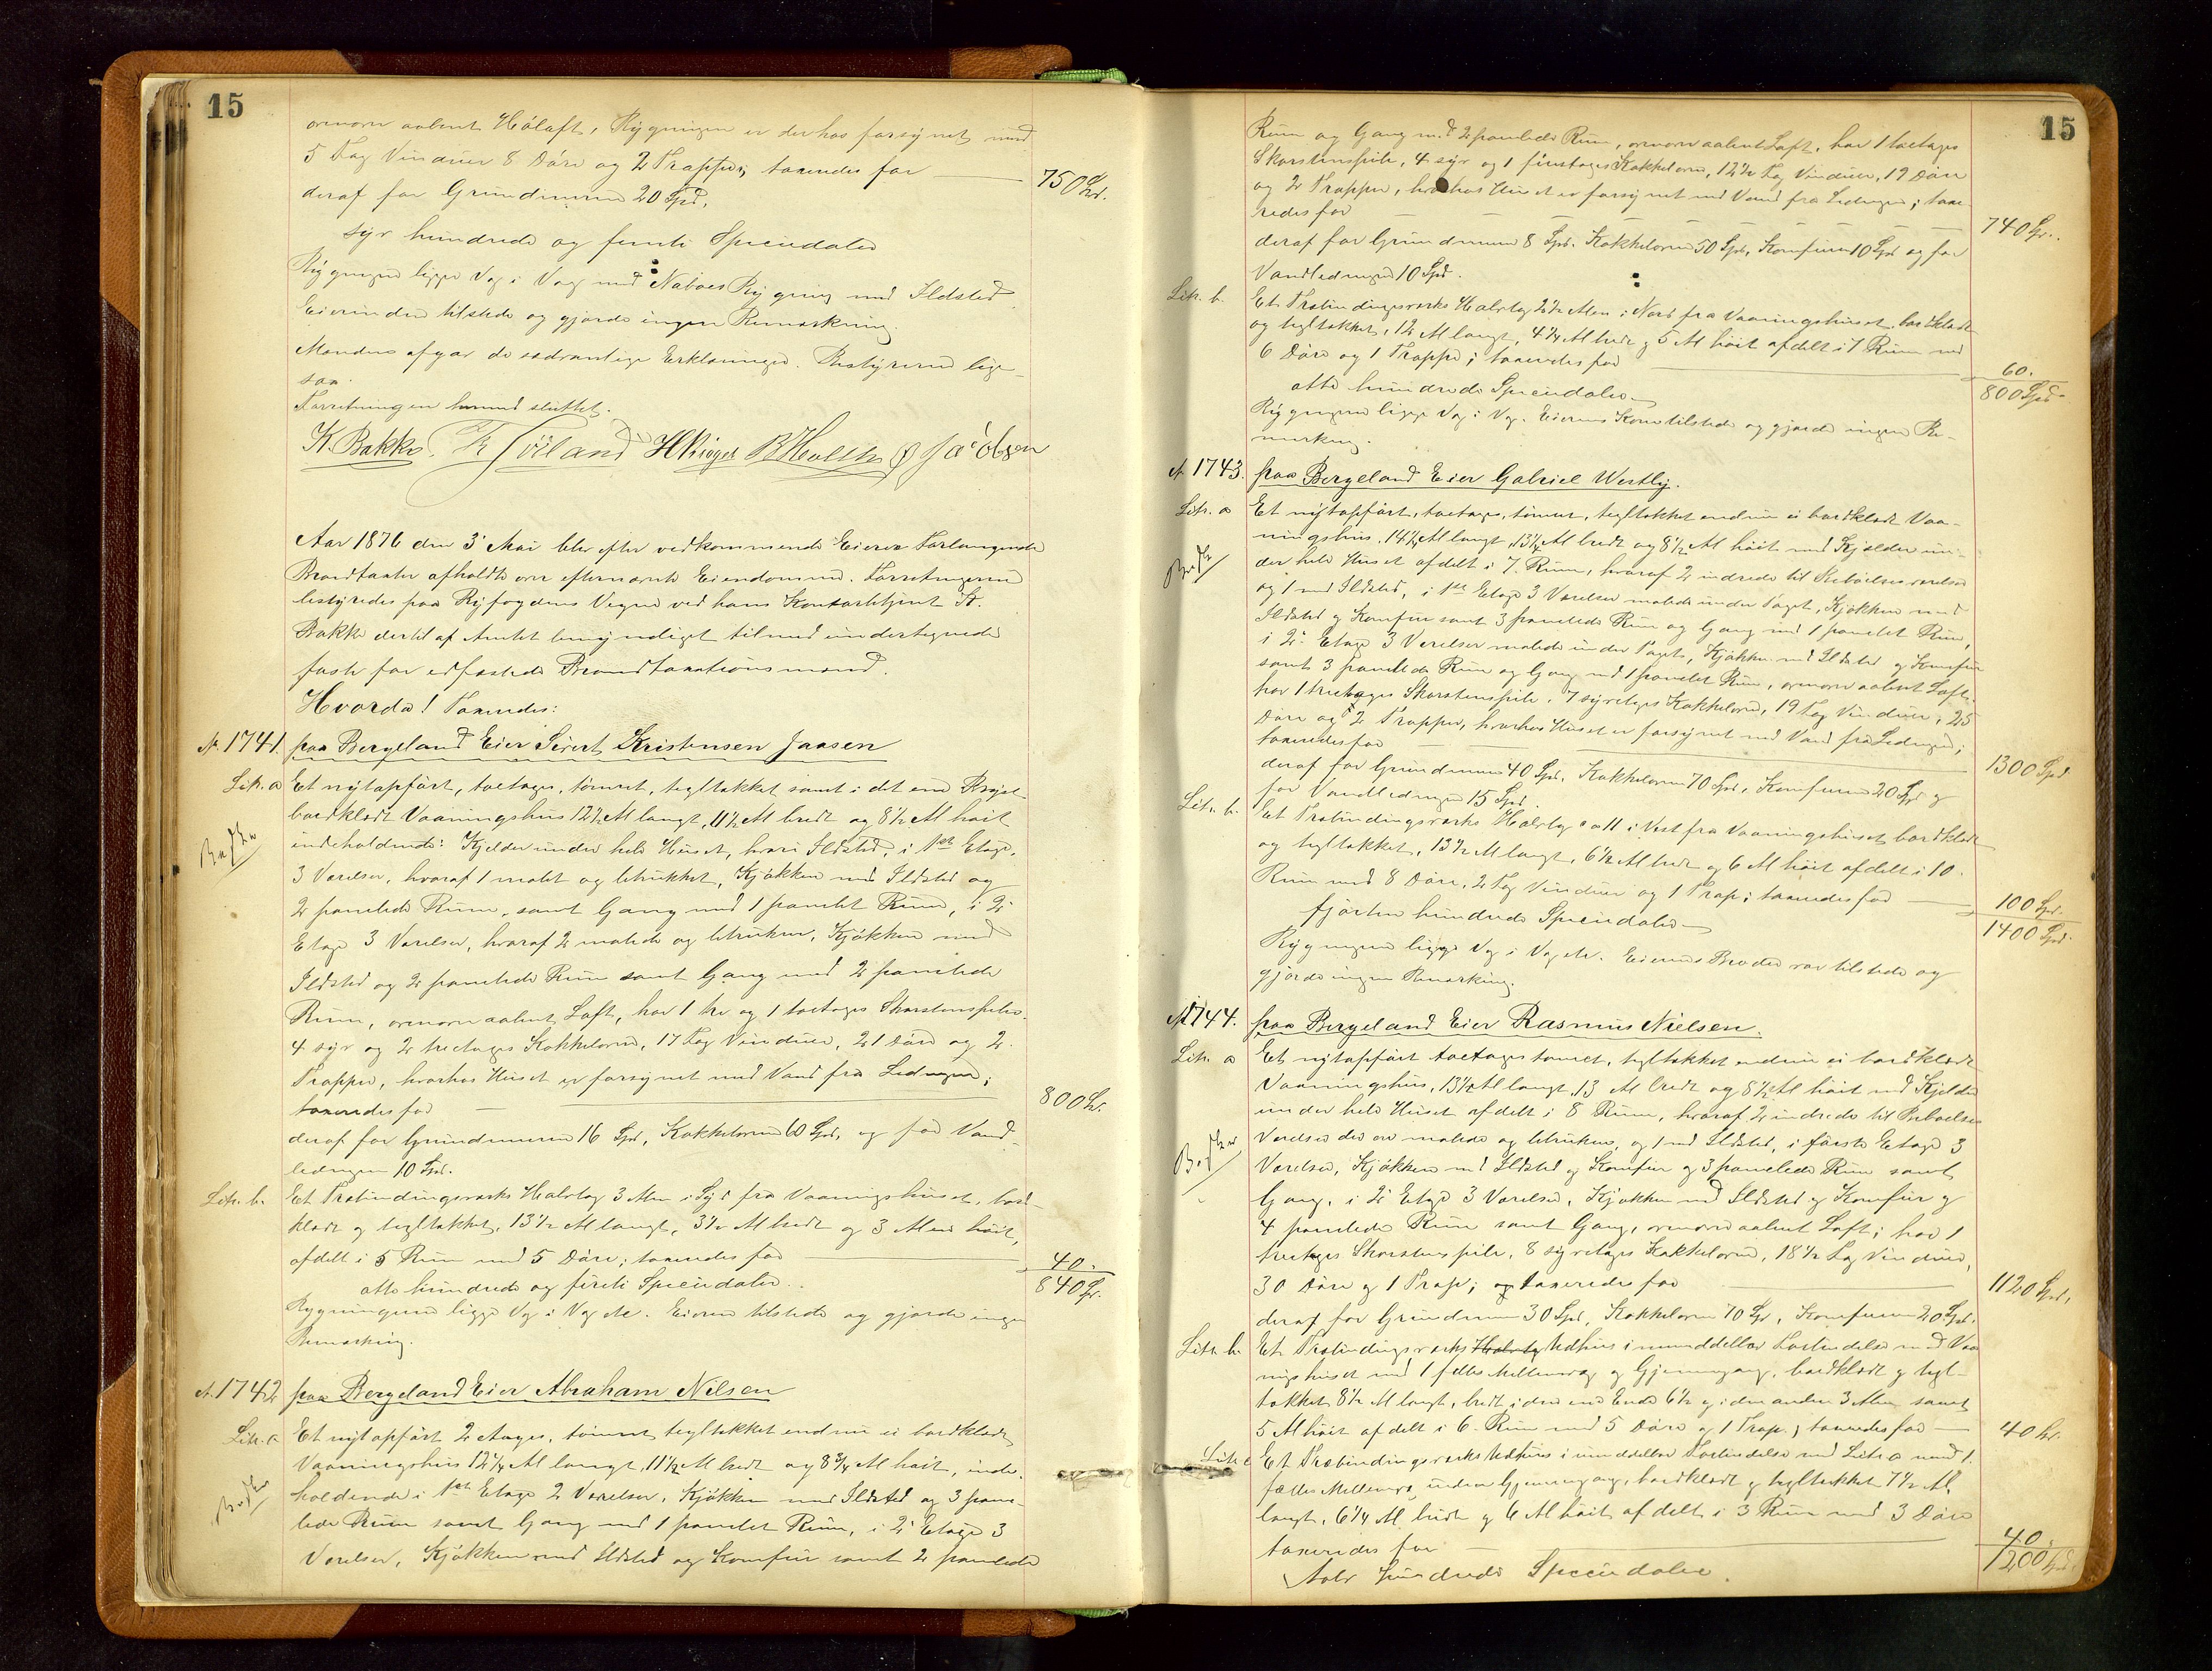 15
ovenover aabent Höloft, Bygningen er derhos forsynet med
5 Fag Vinduer 8 Döre og 2 Trapper; taxeredes for 750 Spd.
deraf for Grundmuren 20 Spd.
syv hundrede og femti Speciedaler
Bygningen ligger Væg i Væg med Naboes Bygning med Ildsted
Eierinden tilstede og gjorde ingen Bemærkning.
Mændene afgav de sædvanlige Erklæringer. Bestyreren lige-
saa.
Forretningen hermed sluttet.
K. Bakke. H Kriger B Holst Jacobsen
Aar 1876 den 3 Mai blev efter vedkommende Eieres Forlangende
Brandtaxter afholdte over efternævnte Eiendomme. Forretningerne
bestyredes paa Byfogdens Vegne ved hans Kontorbetjent K.
Bakke dertil af Amtet bemyndiget tilmed undertegnede
faste for edfæstede Brandtaxationsmænd.
Hvorda! Taxeredes:
No 1741. paa Bergeland Eier Sivert Kristensen Jaasen
Litr. a Et nytopfört, toetages, tömret, tegltækket samt i det ene Bryst
bordklædt Vaaningshus 12½ Al langt, 11½ Al bredt og 8½ Al höit
indeholdende: Kjelder under hele Huset, hvori Ildsted, i 1ste Etage,
3 Værelser, hvoraf 1 malet og betrukket, Kjökken med Ildsted og
2 panelede Rum, samt Gang med 1 panelet Rum, i 2
Etage 3 Værelser, hvoraf 2 malede og betrukne, Kjökken med
Ildsted og 2 panelede Rum samt Gang med 2 panelede
Rum, ovenover aabent Loft, har 1 tre og 1 toetages Skorstenspiber
4 syv og 2 treetages Kakkelovne, 17 Fag Vinduer, 21 Döre og 2
Trapper, hvorhos Huset er forsynet med Vand fra Ledningen;
taxeredes for 800 Spd.
deraf for Grundmuren 16 Spd, Kakkelovne 60 Spd, og for Vand-
ledningen 10 Spd.
Litr. b. Et Trebindingsværks Halvtag 3 Alen i Syd fra Vaaningshuset, bord-
klædt og tegltækket, 13½ Al langt, 3½ Al bredt og 3 Alen höit,
afdelt i 5 Rum med 5 Döre; taxeredes for 40.
otte hundrede og firti Speciedaler. 840 Spd.
Bygningerne ligge Væg i Væg etc. Eieren tilstede og gjorde ingen
Bemærkning.
No 1742 paa Bergeland Eier Abraham Nilsen
Litr. a Et nytopfört 2 etages, tömret tegltækket endnu ei bordklædt
Vaaningshus 12¼ Al langt, 11½ Al bredt og 8¾ Al höit, inde-
holdende i 1ste Etage 2 Værelser, Kjökken med Ildsted og 3 pane-
lede Rum samt Gang med 1 panelet Rum, i 2 Etage 3
Værelser, Kjökken med Ildsted og Komfur samt 2 panelede
15
Rum og Gang med 2 panelede Rum, ovenover aabent Loft, har 1 toetages
Skorstenspibe, 4 syv og 1 femetages Kakkelovne, 12½ Fag Vinduer, 19 Döre
og 2 Trapper, hvorhos Huset er forsynet med Vand fra Ledningen; taxe-
redes for 740 Spd.
deraf for Grundmuren 8 Spd. Kakkelovne 50 Spd, Komfuren 10 Spd og for
Vandledningen 10 Spd.
Litr. b. Et Trebindingsværks Halvtag 2½ Alen i Nord fra Vaaningshuset, bordklædt
og tegltækket, 12 Al langt, 4¼ Al bredt og 5 Al höit afdelt i 7 Rum med
6 Döre og 1 Trappe; taxeredes for 60.
otte hundrede Speciedaler 800 Spd.
Bygningerne ligge Væg i Væg. Eierens Kone tilstede og gjorde ingen Be-
mærkning.
No 1743. paa Bergeland Eier Gabriel Westly.
Litr. a Et nytopfört, toetages, tömret, tegltækket endnu ei bordklædt Vaa-
ningshus. 14¼ Al langt, 13¼ Al bredt og 8½ Al höit med Kjælder un-
der hele Huset afdelt i 7. Rum, hvoraf 2 indrede til Beboelsesværelser
og 1 med Ildsted, i 1ste Etage 3 Værelser malede under Taget, Kjökken med
Ildsted og Komfur samt 3 panelede Rum og Gang med 1 panelet Rum,
i 2 Etage 3 Værelser malede under Taget, Kjökken med Ildsted og Komfur
samt 3 panelede Rum og Gang med 1 panelet Rum, ovenover aabent Loft.
har 1 treetages Skorstenspibe, 7 syvetages Kakkelovne, 19 Fag Vinduer, 25
Döre og 2 Trapper, hvorhos Huset er forsynet med Vand fra Ledningen;
taxeredes for 1300 Spd.
deraf for Grundmuren 40 Spd, Kakkelovne 70 Spd, Komfuren 20 Spd og
for Vandledningen 15 Spd.
Litr. b. Et Trebindingsværks Halvtag i Vest fra Vaaningshuset bordklædt
og tegltækket, 13½ Al langt, 6½ Al bredt og 6 Al höit afdelt i 10.
Rum med 8 Döre, 2 Fag Vinduer og 1 Trap; taxeredes for 100 Spd.
fjörten hundrede Speciedaler 1400 Spd.
Bygningerne ligge Væg i Væg etc. Eierens Broder var tilstede og
gjorde ingen Bemærkning.
No 1744. paa Bergeland Eier Rasmus Nielsen.
Litr. a Et nytopfört toetages tömret, tegltækket endnu ei bordklædt
Vaaningshus, 13½ Al langt, 13 Al bredt og 8½ Al höit med Kjelder
under hele Huset afdelt i 8 Rum, hvoraf 2 indrede til Beboelses
Værelser der ere malede og betrukne, og 1 med Ildsted, i förste Etage 3
Værelser, Kjökken med Ildsted og Komfur og 3 panelede Rum samt
Gang, i 2 Etage 3 Værelser, Kjökken med Ildsted og Komfur og
4 panelede Rum samt Gang, ovenover aabent Loft; har 1
treetages Skorstenspibe, 8 syvetages Kakkelovne, 18½ Fag Vinduer,
30 Döre og 1 Trap; taxeredes for 1120 Spd.
deraf for Grundmuren 30 Spd, Kakkelovne 70 Spd, Komfuren 20 Spd.
Litr. b. Et Trebindingsværks Halvtag Udhus i umiddelbar Forbindelse med Vaa
ningshuset med 1 fælles Mellemvæg og Gjennemgang, bordklædt og tegl-
tækket 8½ Al langt, bredt i den ene Ende 6½ og i den anden 3 Alen samt
5 Al höit afdelt i 6. Rum med 5 Döre og 1 Trap; taxeredes for 40 Spd.
Litr. c Et Træbindingsværks Udhus i umiddelbar Forbindelse med Litr. a med 1.
fælles Mellemvæg uden Gjennemgang, bordklædt og tegltækket 7½ Al
langt, 6¼ Al bredt og 6 Al höit afdelt i 3 Rum med 3 Döre
taxeredes for 40.
Tolv hundrede Speciedaler. 1200 Spd.